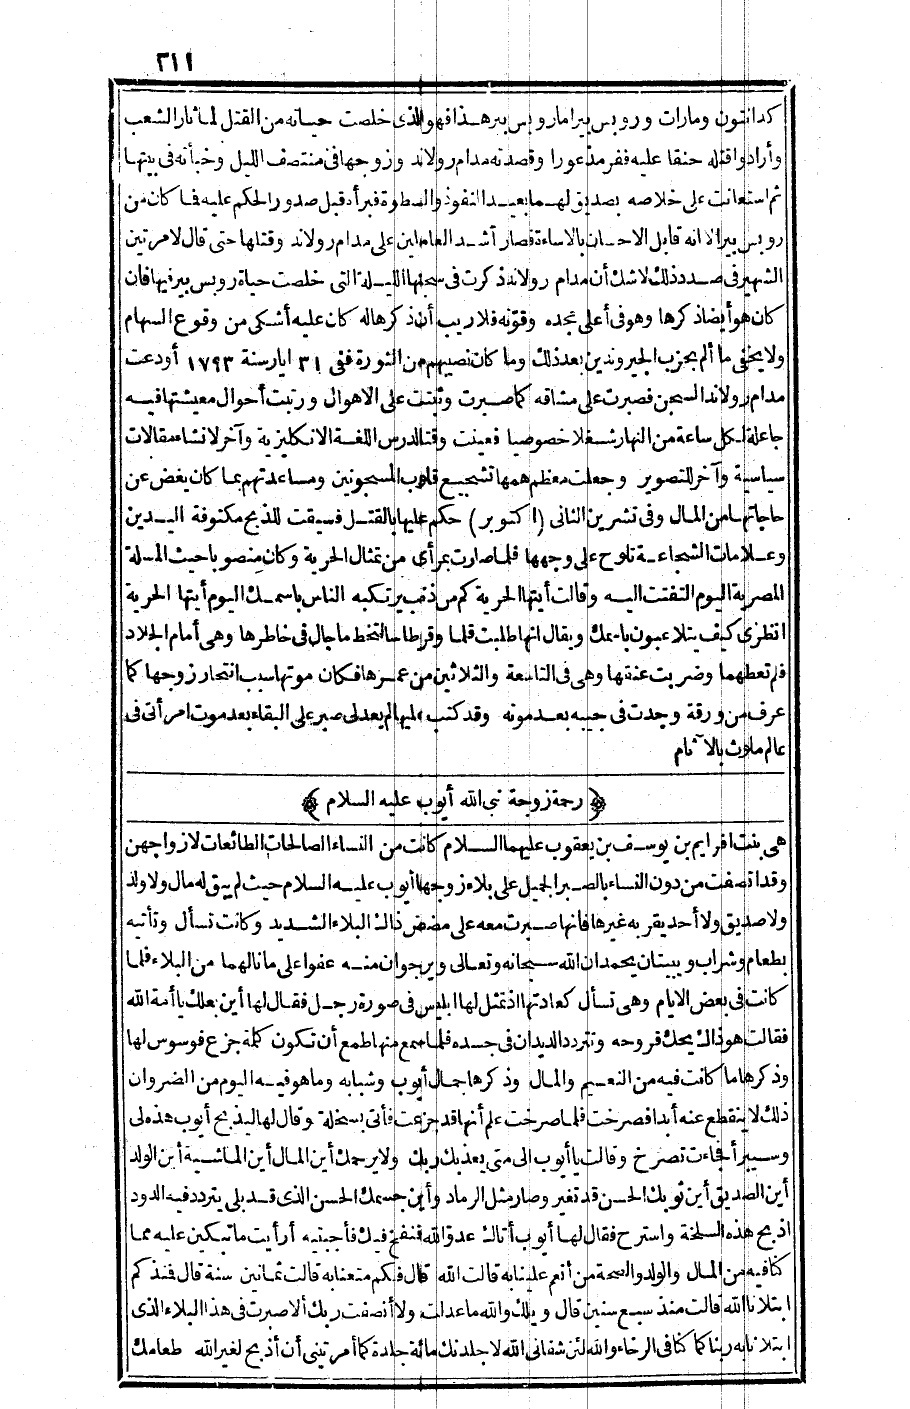 ٢١١
كدانتون ومارات وروبس بيرا ماروبس بير هذا فهو الذى خلصت حياته من القتل لما ثار الشعب
وأرادوا قتله حنقا عليه ففر مذعورا وقصدته مدام رولاند وزوجها فى منتصف الليل وخبأته فى بيتها
ثم استعانت على خلاصه بصديق لهما بعيد النفوذ والسطوة فبرأه قبل صدور الحكم عليه فما كان من
روبس بير الا انه قابل الاحسان بالاساءة فصار أشد العاملين على مدام رولاند وقتلها حتى قال لامرتين
الشهير فى صدد ذلك لاشك أن مدام رولاند ذكرت فى سجنها الليلة التى خلصت حياة روبس بير فيها فان
كان هو أيضا ذكرها وهو فى أعلى مجده وقوته فلا ريب أن ذكرها له كان عليه أشكى من وقوع السهام
ولا يخفى ما ألم بحزب الجيروندين بعد ذلك وما كان نصيبهم من الثورة ففى ٣١ ايار سنة ١٧٩٣ أودعت
مدام رولاند السجن فصبرت على مشاقه كما صبرت وثبتت على الاهوال ورتبت أحوال معيشتها فيه
جاعلة لكل ساعة من النهار شغلا خصوصيا فعينت وقتا لدرس اللغة الانكليزية وآخر لانشاء مقالات
سياسية وآخر للتصوير وجعلت معظم همها تشجيع قلوب المسجونين ومساعدتهم بما كان يفيض عن
حاجاتها من المال وفى تشرين الثانى (اكتوبر) حكم عليها بالقتل فسيقت للذبح مكتوفة اليدين
وعلامات الشجاعة تلوح على وجهها فلما صارت بمرأى من تمثال الحرية وكان منصوبا حيث المسلة
المصرية اليوم التفتت اليه وقالت أيتها الحرية كم من ذنب يرتكبه الناس باسمك اليوم أيتها الحرية
انظرى كيف يتلاعبون باسمك ويقال انها طلبت قلما وقرطاسا لتخط ما جال فى خاطرها وهى أمام الجلاد
فلم تعطهما وضربت عنقها وهى فى التاسعة والثلاثين من عمرها فكان موتها سبب انتحار زوجها كما
عرف من ورقة وجدت فى جيبه بعد موته وقد كتب عليها لم يعد لى صبر على البقاء بعد موت امرأتى فى
عالم ملوث بالآثام
﴿رحمة زوجة نبى الله أيوب عليه السلام﴾
هى بنت افرايم بن يوسف بن يعقوب عليهما السلام كانت من النساء الصالحات الطائعات لازواجهن
وقد اتصفت من دون النساء بالصبر الجميل على بلاء زوجها أيوب عليه السلام حيث لم يبق له مال ولا ولد
ولا صديق ولا أحد يقربه غيرها فانها صبرت معه على مضض ذلك البلاء الشديد وكانت تسأل وتأتيه
بطعام وشراب ويبيتان يحمدان الله سبحانه وتعالى ويرجوان منه عفوا على ما نالهما من البلاء فلما
كانت فى بعض الايام وهى تسأل كعادتها اذ تمثل لها ابليس فى صورة رجل فقال لها أين بعلك يا أمة الله
فقالت هو ذاك يحك قروحه وتتردد الديدان فى جسده فلما سمع منها طمع أن تكون كلمة جزع فوسوس لها
وذكرها ما كانت فيه من النعيم والمال وذكرها جمال أيوب وشبابه وما هو فيه اليوم من الضر وان
ذلك لا ينقطع عنه أبدا فصرخت فلما صرخت علم أنها قد جزعت فأتى بسخلة وقال لها ليذبح أيوب هذه لى
وسيبرأ فجاءت تصرخ وقالت يا أيوب الى متى يعذبك ربك ولا يرحمك أين المال أين الماشية أين الولد
أين الصديق أين ثوبك الحسن قد تغير وصار مثل الرماد وأين جسمك الحسن الذى قد بلى يتردد فيه الدود
اذبح هذه السخلة واسترح فقال لها أيوب أتاك عدو الله فنفخ فيك فأجبتيه أرأيت ما تبكين عليه مما
كنا فيه من المال والولد والصحة من أنعم علينا به قالت الله قال فكم متعنا به قالت ثمانين سنة قال فمنذ كم
ابتلانا الله قالت منذ سبع سنين قال ويلك والله ما عدلت ولا أنصفت ربك ألا صبرت فى هذا البلاء الذى
ابتلانا به ربنا كما كنا فى الرخاء والله لئن شفانى الله لاجلدنك مائة جلدة كما أمرتينى أن أذبح لغير الله طعامك